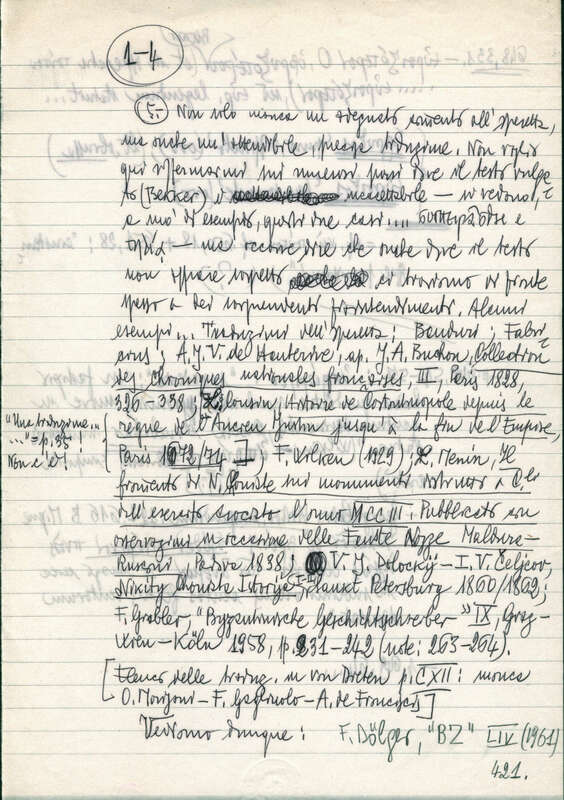 1-4
5.- Non solo manca un adeguato commento all'operetta,
ma anche un'attendibile traduzione. Non voglio
qui soffermarmi sui numerosi passi dove il testo vulga-
to (Bekker) è inaccettabile — si vedano,
a mo' di esempio, questi due casi....
e — ma occorre dire che anche dove il testo
non appare sospetto ci troviamo di fronte
spesso a dei sorprendenti fraintendimenti. Alcuni
esempi... Traduzioni dell'operetta: Banduri; Fabri-
cius; A.J.V. de Hauterive, ap. J.A. Buchon, Collection
des Chroniques nationales françaises, III, Paris 1828,
326-338; Cousin, Histoire de Constantinople depuis le
règne de l'Ancien Justin jusqu'à la fin de l'Empire,
"Una traduzione...
..." = p. 35
Non c'è!
Paris 1672/74; F. Wilken (1829); L. Menin, Il
frammento di N. Coniate sui monumenti distrutti a C.li
dall'esercito crociato l'anno MCCIII. Pubblicato con
osservazioni in occasione delle Fauste Nozze Maldura-
Rusconi, Padova 1838; V. J. Dolockij - I. V. Čeljcov,
Nikity Choniata Istorija, Sankt Petersburg 1860/1862;
F. Grabler, "Byzantinische Geschichtschreiber" IX, Graz-
Wien-Köln 1958, p. 231-242 (note: 263-264).
[Elenco delle traduz. in van Dieten p. CXII: manca
O. Morisani - F. Gagliuolo - A. de Franciscis]
Vediamo dunque: F. Dölger, "BZ" LIV (1961)
421.